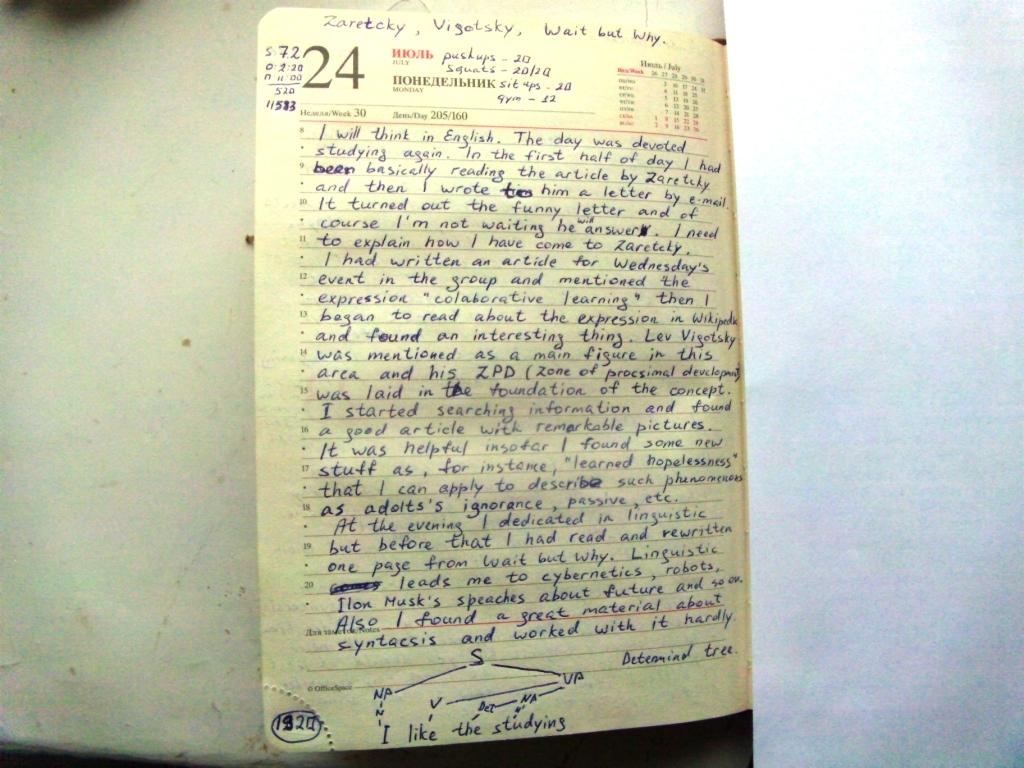 Zaretcky, Vigotsky, Wait but Why.
24
ИЮЛЬ
JULY
ПОНЕДЕЛЬНИК
MONDAY
pushups - 20
squats - 20/20
sit ups - 20
gym - 12
S 7.2
0:2:20
n 11:00
520
11583
Июль / July
Нед/Week 26 27 28 29 30 31
Неделя/Week 30 День/Day 205/160
8 I will think in English. The day was devoted
studying again. In the first half of day I had
9 been basically reading the article by Zaretcky
and then I wrote to him a letter by e-mail.
10 It turned out the funny letter and of
course I'm not waiting he will answer. I need
11 to explain how I have come to Zaretcky.
I had written an article for Wednesday's
12 event in the group and mentioned the
expression "colaborative learning" then I
13 began to read about the expression in Wikipedia
and found an interesting thing. Lev Vigotsky
14 was mentioned as a main figure in this
area and his ZPD (zone of procsimal development)
15 was laid in the foundation of the concept.
I started searching information and found
16 a good article with remarkable pictures.
It was helpful insofar I found some new
17 stuff as, for instance, "learned hopelessness"
that I can apply to describe such phenomenons
18 as adolts's ignorance, passive, etc.
At the evening I dedicated in linguistic
19 but before that I had read and rewritten
one page from Wait but Why. Linguistic
20 leads me to cybernetics, robots,
Ilon Musk's speaches about future and so on.
Also I found a great material about
Для заметок/Notes
syntacsis and worked with it hardly.
Detemind tree.
S
NP VP
V Det NP
N N
I like the studying
© OfficeSpace
1320